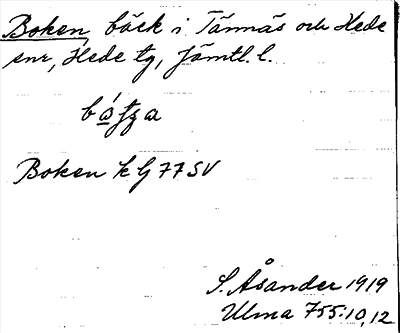 Boken bäck i Tännäs och Hede
snr, Hede tg, Jämtl. l.
Boken k G 77 SV
S. Åsander 1919
Ulma 755:10,12